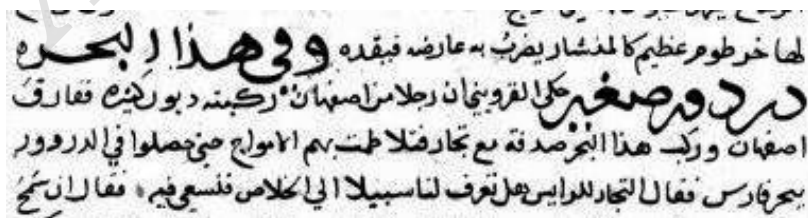 لها خرطوم عظيم كالمنشار يضرب به عارضه فيقده وفى هذا البحره
دردور صغير حكى القزوينى ان رجلا من اصفهان ركبته ديون كثيره ففارق
اصفهان وركب هذا البحر صدفة مع تجار فتلاطمت بهم الامواج حتى حصلوا في الدردور
ببحر فارس فقال التجار للرايس هل تعرف لنا سبيلا الى الخلاص فنسعى فيه فقال ان سمح